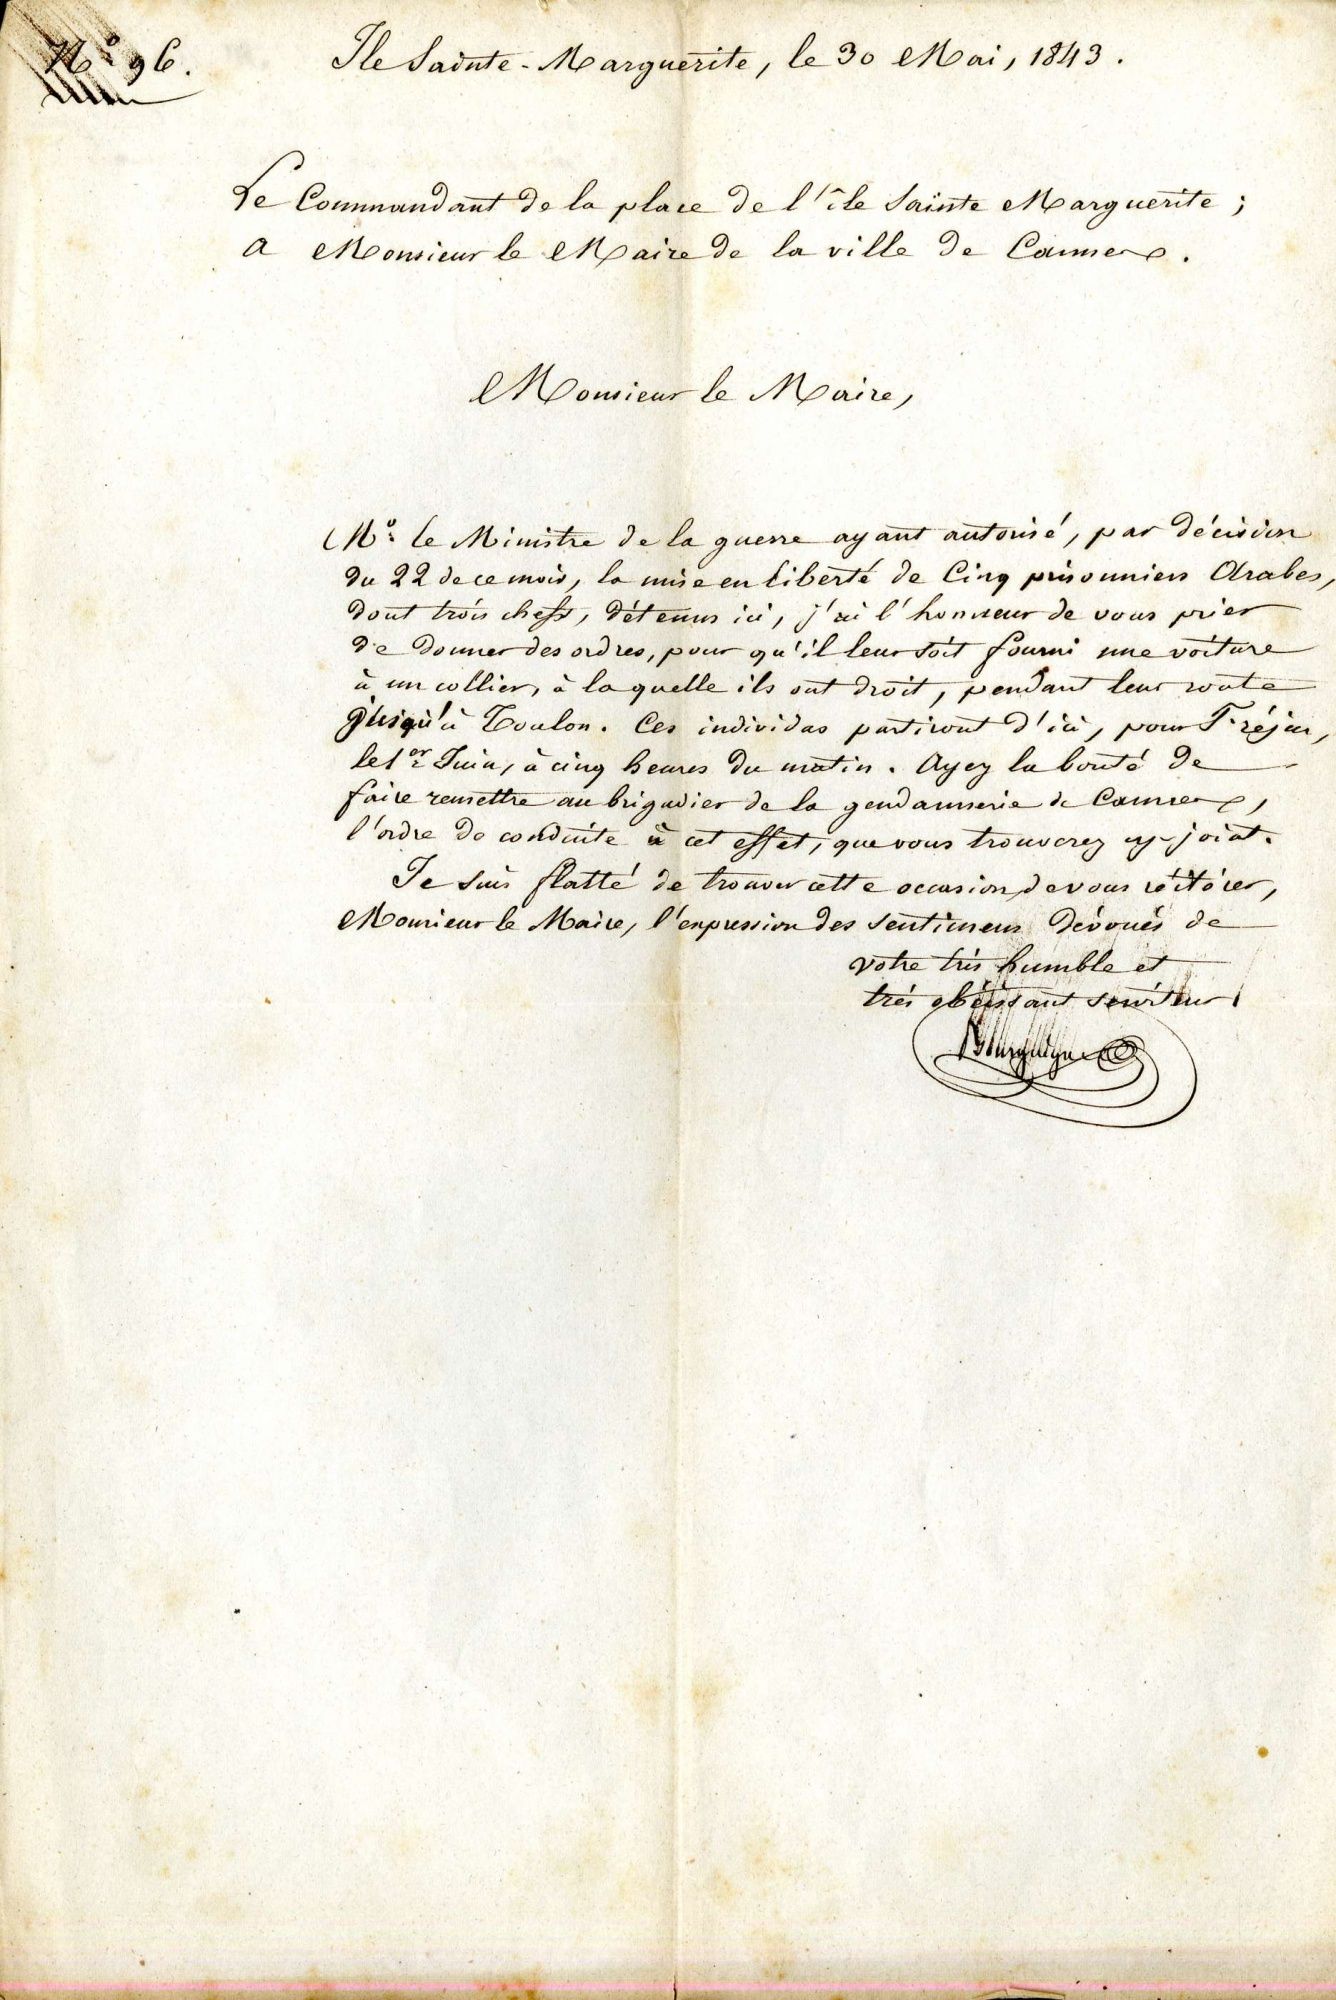 N.° 96.
Ile Sainte-Marguerite, le 30 Mai, 1843.
Le Commandant de la place de l'île Sainte Marguerite;
A Monsieur le Maire de la ville de Cannes.
Monsieur le Maire,
M.r le Ministre de la guerre ayant autorisé, par décision
du 22 de ce mois, la mise en liberté de Cinq prisonniers Arabes,
dont trois chefs, détenus ici, j'ai l'honneur de vous prier
de donner des ordres, pour qu'il leur soit fourni une voiture
à un collier, à la quelle ils ont droit, pendant leur route
jusqu'à Toulon. Ces individus partiront d'ici, pour Fréjus,
le 1er Juin, à cinq heures du matin. Ayez la bonté de
faire remettre au brigadier de la gendarmerie de Cannes,
l'ordre de conduite à cet effet, que vous trouverez cy-joint.
Je suis flatté de trouver cette occasion, de vous réitérer,
Monsieur le Maire, l'expression des sentimens dévoués de
votre très humble et
très obéissant serviteur
Bourguignon